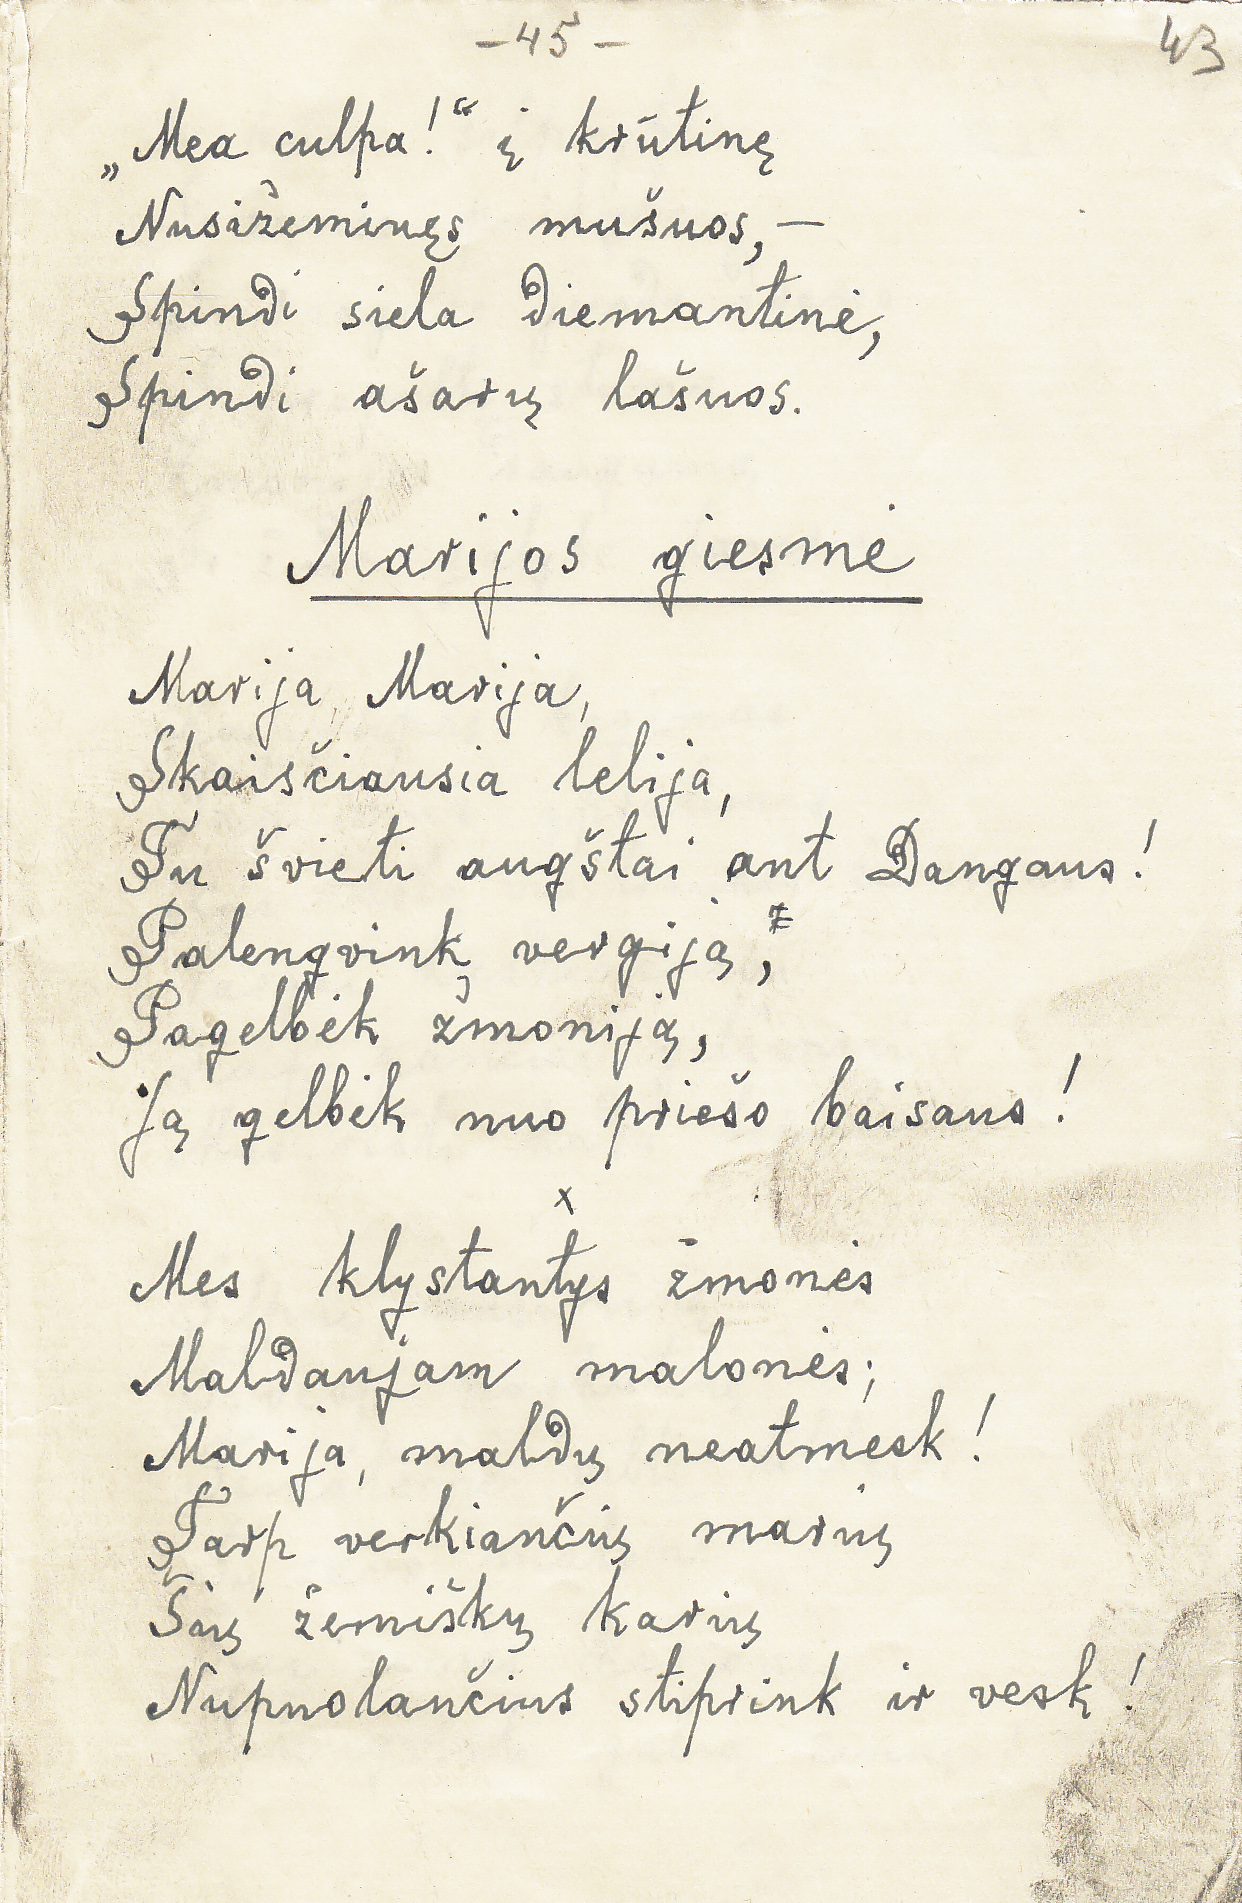 – 45 –
43
„Mea culpa!“ į krūtinę
Nusižeminęs mušuos, –
Spindi siela diemantinė,
Spindi ašarų lašuos.
Marijos giesmė
Marija, Marija,
Skaisčiausia lelija,
Tu švieti augštai ant Dangaus!
Palengvink vergiją,
Pagelbėk žmoniją,
Ją gelbėk nuo priešo baisaus!
x
Mes klystantys žmonės
Maldaujam malonės;
Marija, maldų neatmesk!
Tarp verkiančių marių
Šių žemiškų karių
Nupuolančius stiprink ir vesk!